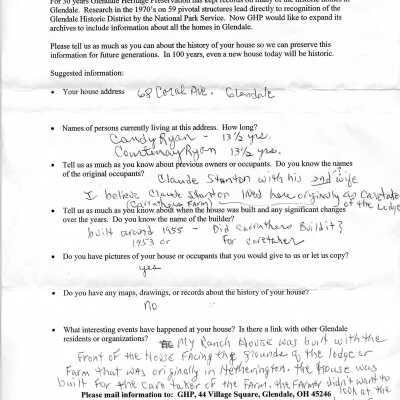 For 30 years Glendale Heritage Preservation has kept records on many of the historic homes in
Glendale. Research in the 1970's on 59 pivotal structures lead directly to recognition of the
Glendale Historic District by the National Park Service. Now GHP would like to expand its
archives to include information about all the homes in Glendale.
Please tell us as much as you can about the history of your house so we can preserve this
information for future generations. In 100 years, even a new house today will be historic.
Suggested information:
• Your house address 68 Coral Ave. Glendale
• Names of persons currently living at this address. How long?
Candy Ryan - 13½ yrs.
Courtenay Ryan 13½ yrs.
• Tell us as much as you know about previous owners or occupants. Do you know the names
of the original occupants? Claude Stanton with his 2nd wife
I believe Claude Stanton lived here originally as Caretaker
(Carruthers Farm) of the Lodge
• Tell us as much as you know about when the house was built and any significant changes
over the years. Do you know the name of the builder?
built around 1955 - Did Carruthers Build it?
1953 or For caretaker
• Do you have pictures of your house or occupants that you would give to us or let us copy?
yes
• Do you have any maps, drawings, or records about the history of your house?
NO
• What interesting events have happened at your house? Is there a link with other Glendale
residents or organizations? My Ranch House was built with the
front of the House facing the grounds of the lodge or
Farm that was originally in Netherington. The House was
built for the care taker of the Farm. The Farmer didn't want to
look at the
Please mail information to: GHP, 44 Village Square, Glendale, OH 45246